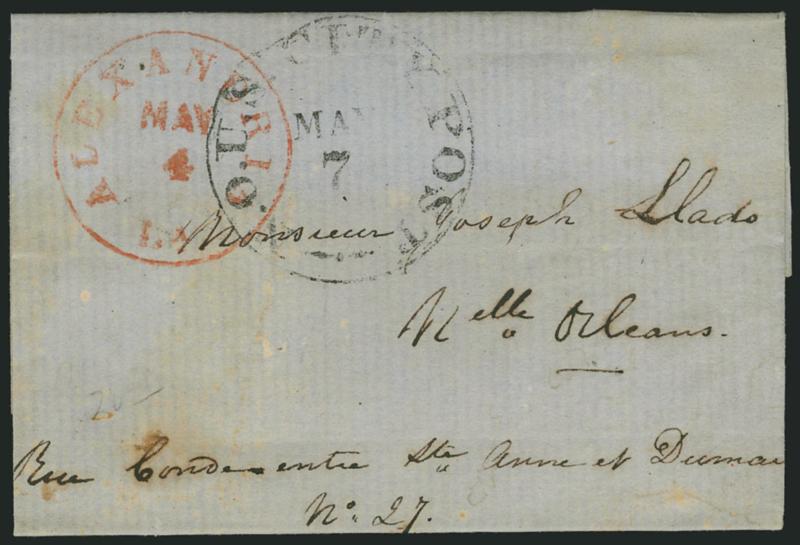 ALEXANDRIA
MAY
4
LA
U.S. CITY POST
MAY
7
Monsieur Joseph Llado
Nelle Orleans.
Rue Conde entre Ste Anne et Dumai
No. 27.
20